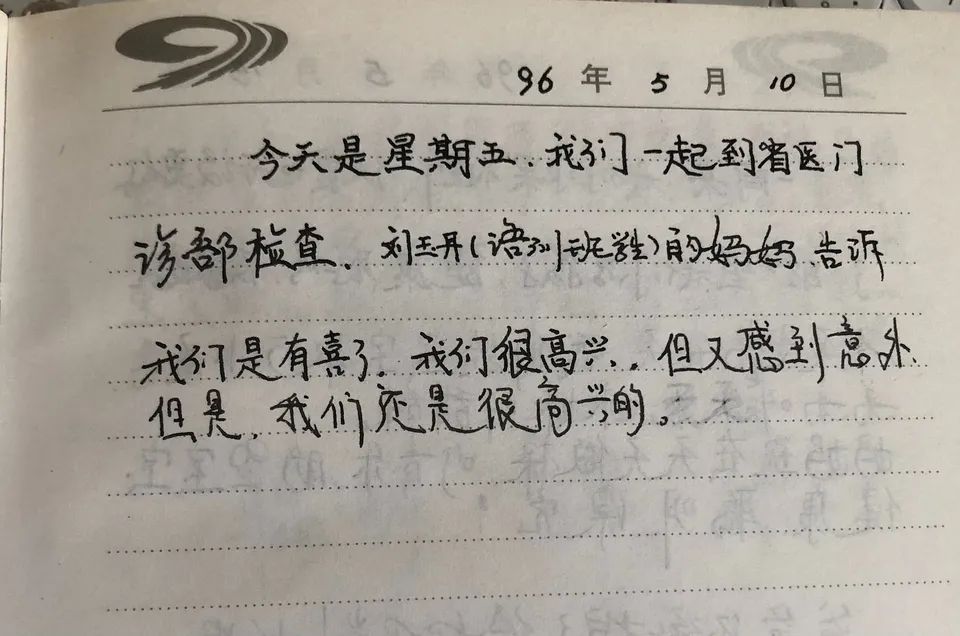 96 年 5 月 10 日
今天是星期五、我们一起到省医门
诊部检查、刘玉丹(语训班学生)的妈妈告诉
我们是有喜了、我们很高兴.但又感到意外、
但是、我们还是很高兴的。